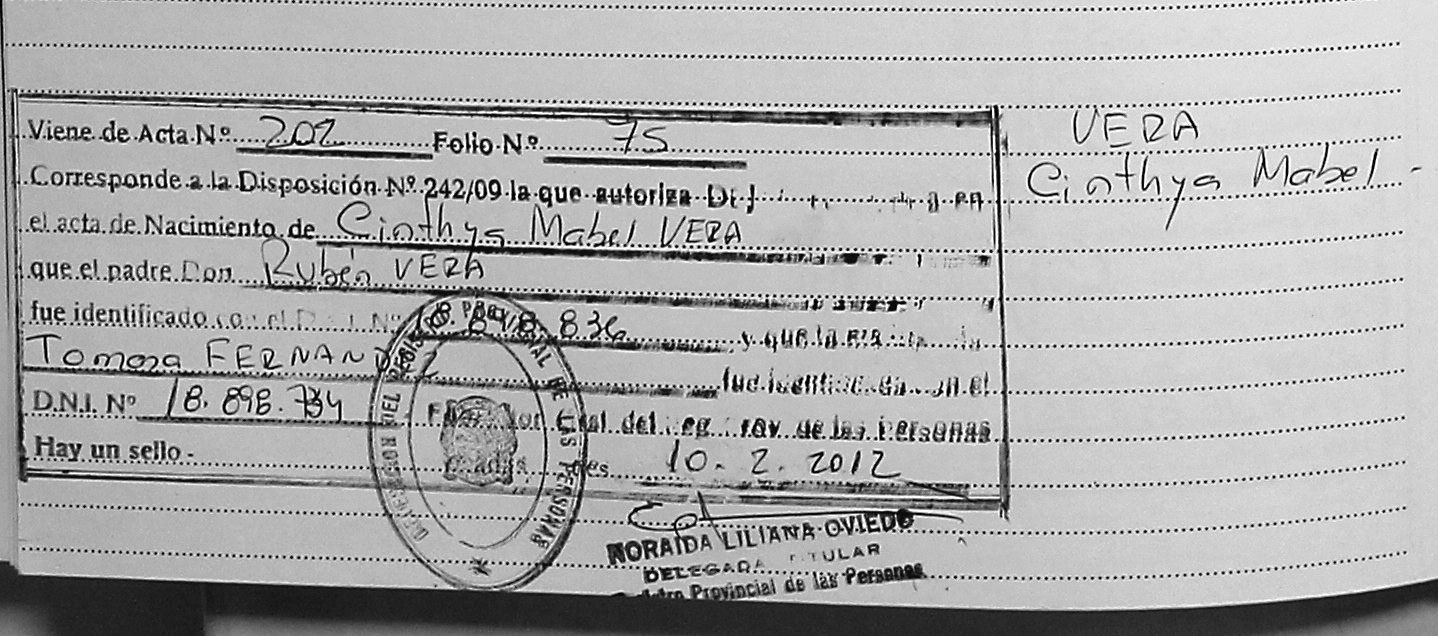 Viene de Acta Nº 202 Folio Nº 75
Corresponde a la Disposición Nº 242/09 la que autoriza
el acta de Nacimiento de Cinthya Mabel VERA
que el padre Don Rubén VERA
fue identificado con el D.N.I. Nº 18. 898. 836 y que la
Tomasa FERNANDEZ fue identificada con el
D.N.I. Nº 18. 898. 734 del de las Personas
Hay un sello - 10. 2. 2012
VERA
Cinthya Mabel -
PROVINCIAL DE LAS PERSONAS
NORAIDA LILIANA OVIEDO
DELEGADA TITULAR
Provincial de las Personas